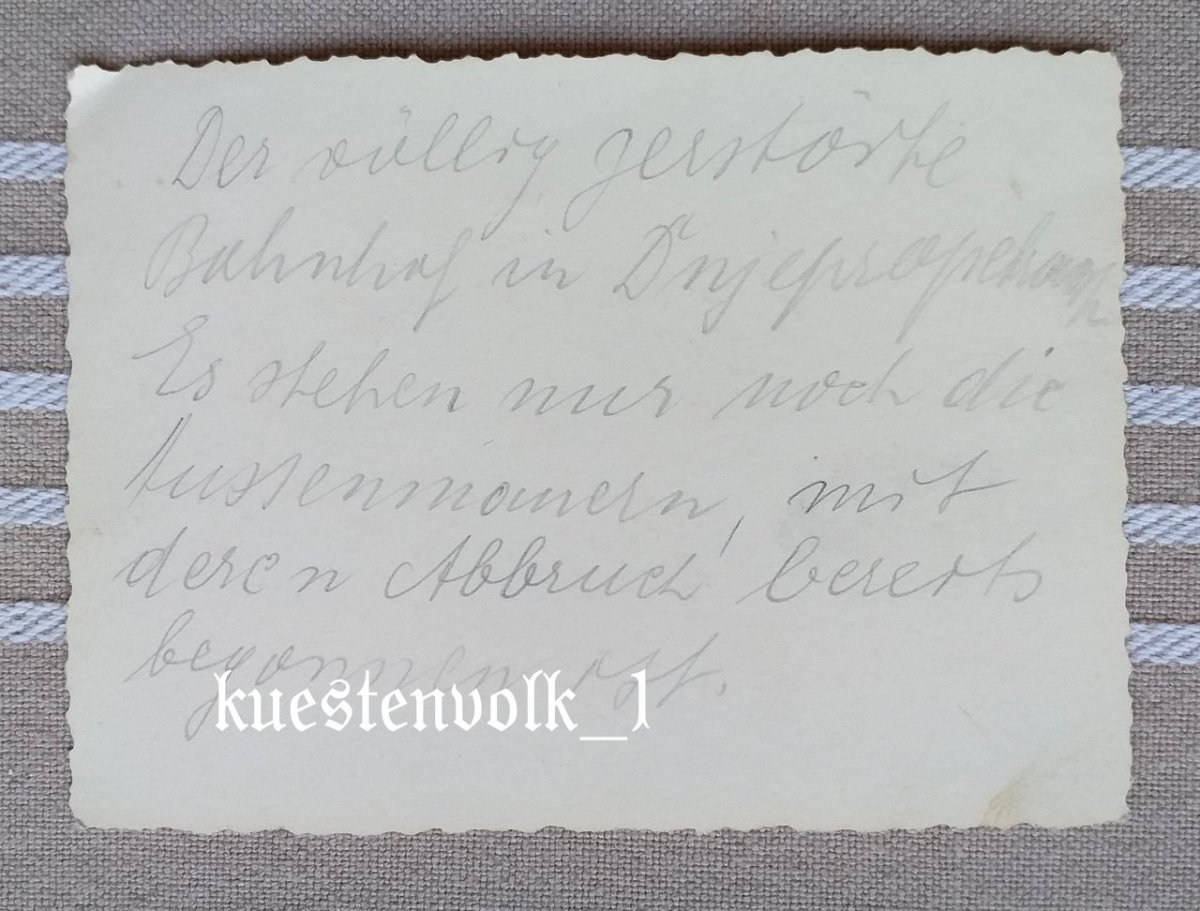 Der völlig zerstörte
Bahnhof in
Es stehen nur noch die
Aussenmauern, mit
deren Abbruch bereits
begonnen ist.
kuestenvolk_1